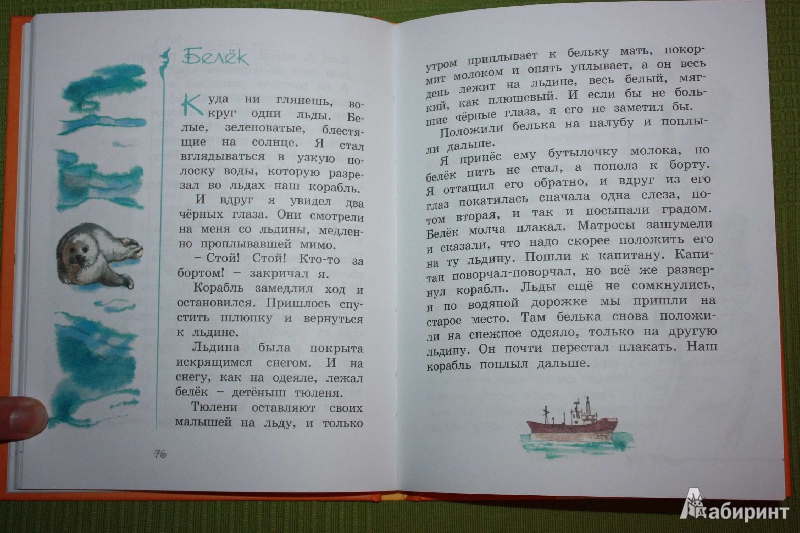 Белёк
Куда ни глянешь, во-
круг одни льды. Бе-
лые, зеленоватые, блестя-
щие на солнце. Я стал
вглядываться в узкую по-
лоску воды, которую разре-
зал во льдах наш корабль.
И вдруг я увидел два
чёрных глаза. Они смотрели
на меня со льдины, медлен-
но проплывавшей мимо.
– Стой! Стой! Кто-то за
бортом! – закричал я.
Корабль замедлил ход и
остановился. Пришлось спу-
стить шлюпку и вернуться
к льдине.
Льдина была покрыта
искрящимся снегом. И на
снегу, как на одеяле, лежал
белёк – детёныш тюленя.
Тюлени оставляют своих
малышей на льду, и только
76
утром приплывает к бельку мать, покор-
мит молоком и опять уплывает, а он весь
день лежит на льдине, весь белый, мяг-
кий, как плюшевый. И если бы не боль-
шие чёрные глаза, я его не заметил бы.
Положили белька на палубу и поплы-
ли дальше.
Я принёс ему бутылочку молока, но
белёк пить не стал, а пополз к борту.
Я оттащил его обратно, и вдруг из его
глаз покатилась сначала одна слеза, по-
том вторая, и так и посыпали градом.
Белёк молча плакал. Матросы зашумели
и сказали, что надо скорее положить его
на ту льдину. Пошли к капитану. Капи-
тан поворчал-поворчал, но всё же развер-
нул корабль. Льды ещё не сомкнулись,
и по водяной дорожке мы пришли на
старое место. Там белька снова положи-
ли на снежное одеяло, только на другую
льдину. Он почти перестал плакать. Наш
корабль поплыл дальше.
Лабиринт